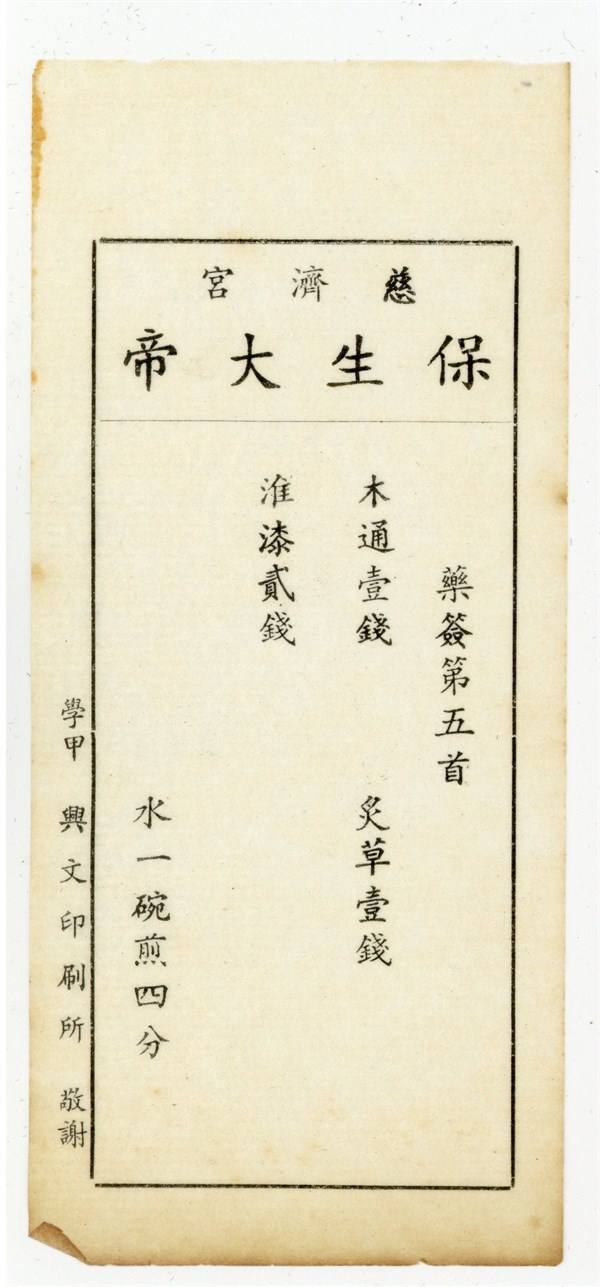 慈濟宮
保生大帝
藥簽第五首
木通壹錢　炙草壹錢
淮漆貳錢
水一碗煎四分
學甲　興文印刷所　敬謝